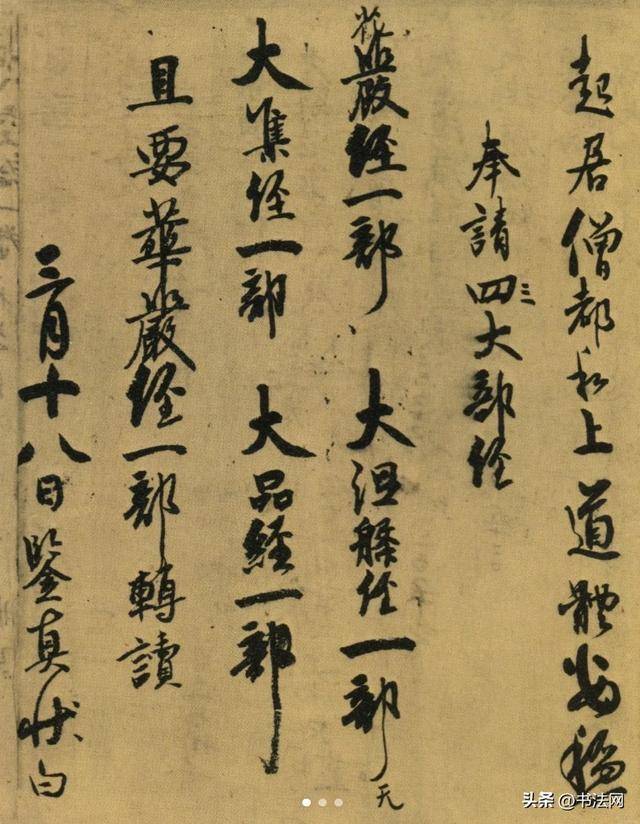 起居僧都和上道體安穩
奉請四三大部経
花嚴経一部 大涅槃経一部 无
大集経一部 大品経一部
且要華嚴経一部轉讀
三月十八日鑒真状白
头条@书法网